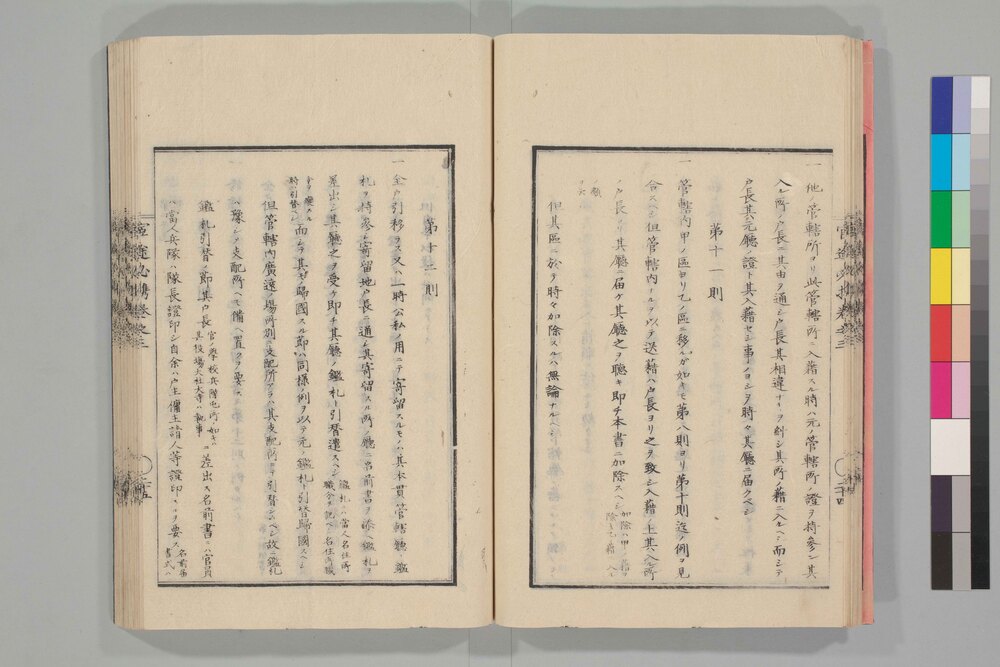 一他ノ管轄所ヨリ此管轄所ニ入籍スル時ハ元ノ管轄所ノ證ヲ持參シ其
入ル所ノ戸長ニ其由ヲ通シ戸長其相違ナキヲ糾シ其所ノ籍ニ入ルヘシ而シテ
戸長其元廳ノ證ト其入籍セシ事ノヨシヲ時々其廳ニ届クヘシ
第十一則
一管轄内甲ノ區ヨリ乙ノ區ニ移ルカ如キモ第八則ヨリ第十則迄ノ例ヲ見
合スヘシ但管轄内ナルヲ以テ送籍ハ戸長ヨリ之ヲ致シ入籍ノ上其入ル所
ノ戸長ヨリ其廳ニ届ケ其廳之ヲ聴キ即チ本書ニ加除スヘシ
但其區ニ於テ時々加除スルハ無論ナルヘシ
第十二則
一全戸引移ヲス又ハ一時公私ノ用ニテ寄留スルモノハ其本貫管轄廳ノ鑑
札ヲ持參シ寄留地戸長ニ通シ其寄留スル所ノ廳ニ名前書ヲ添ヘ鑑札ヲ
差出シ其廳之ヲ受ケ即チ其廳ノ鑑札ト引替遣スヘシ鑑札ハ當人名住所
職分ヲ記ヘシ名住所職
時ハ引替ヘシ而シテ其者歸國スル節ハ同様ノ例ヲ以テ元ノ鑑札ト引替歸國スヘシ
但管轄内廣遠ノ場所別ニ支配所アラハ其支配所ニテ引替シムヘシ故ニ鑑札
ハ豫シメ支配所ヘモ備ヘ置クヲ要ス
一鑑札引替ノ節其戸長官ノ學校兵隊屯所如キハ
其役場大社大寺ハ執事ヨリ差出ス名前書ニハ官員
ハ當人兵隊ハ隊長證印シ自余ハ戸主傭主請人等證印スルヲ要ス名前届
書式ハ